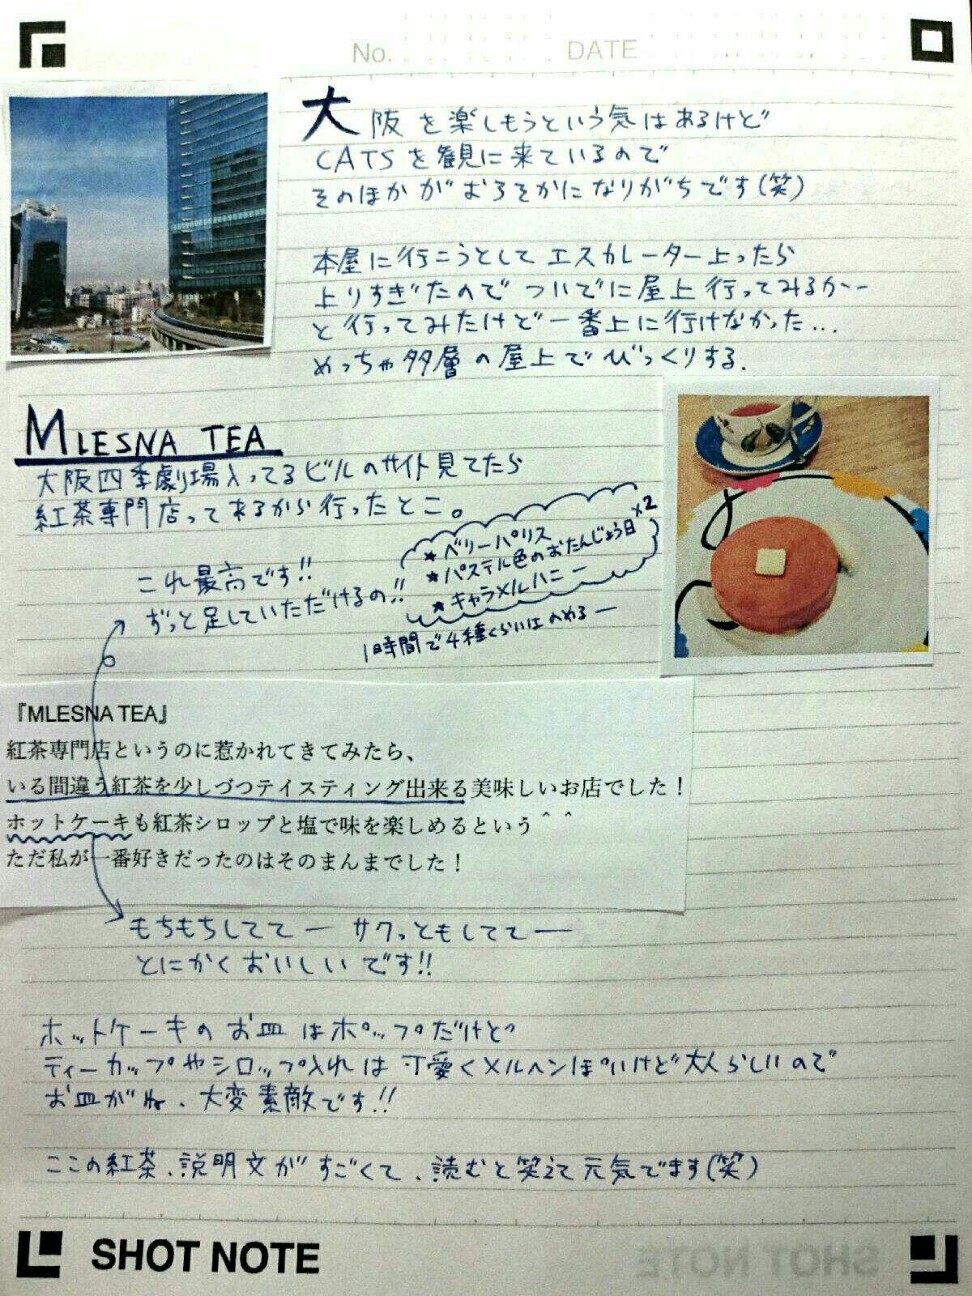 No.
DATE
大阪を楽しもうという気はあるけど
CATSを観に来ているので
そのほかがおろそかになりがちです(笑)
本屋に行こうとしてエスカレーター上ったら
上りすぎたのでついでに屋上行ってみるかー
と行ってみたけど一番上に行けなかった...
めっちゃ多層の屋上でびっくりする.
MLESNA TEA
大阪四季劇場入ってるビルのサイト見てたら
紅茶専門店ってあるから行ったとこ。
これ最高です!!
ずっと足していただけるの!!
★ベリーパリス
★パステル色のおたんじょう日 ×2
★キャラメルハニー
1時間で4種くらいはのめるー
『MLESNA TEA』
紅茶専門店というのに惹かれてきてみたら、
いる間違う紅茶を少しづつテイスティング出来る美味しいお店でした!
ホットケーキも紅茶シロップと塩で味を楽しめるという＾＾
ただ私が一番好きだったのはそのまんまでした!
もちもちしててー サクッともしててー
とにかくおいしいです!!
ホットケーキのお皿はポップだけど
ティーカップやシロップ入れは可愛くメルヘンぽいけど大人らしいので
お皿がね、大変素敵です!!
ここの紅茶、説明文がすごくて、読むと笑えて元気でます(笑)
SHOT NOTE
SHOT NOTE